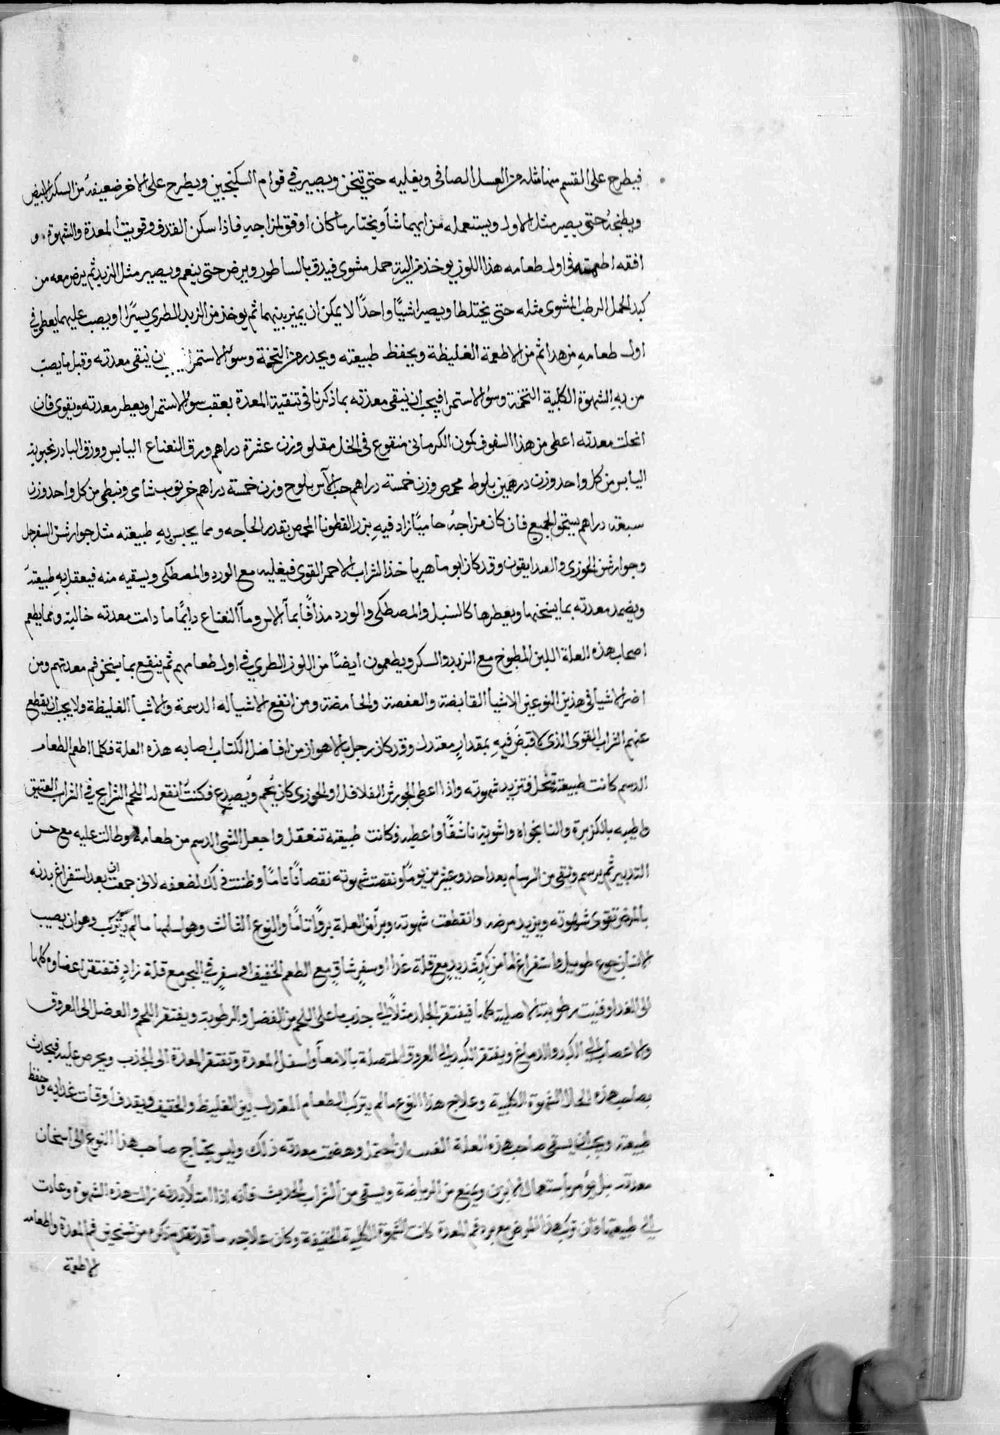 فيطرح على القسم منها مثله من العسل الصافي ويغليه حتى يثخن ويصير في قوام السكنجبين ويطرح على الاخر ضعيفه من السكر الابيض
ويطبخه حتى يصير مثل الاول ويستعمله من ايهما شآ ويختار ما كان اوفق لمزاجه فاذا سكن القذف وقويت المعدة والشهوة و
افقه اطعمته في اول طعامه هذا اللون يوخذ من الية حمل مشوي فيدق بالساطور ويرض حتى ينعم ويصير مثل الزبد ثم يرض معه من
كبد الحمل الرطب المشوي مثله حتى يختلطا ويصيرا شيًا واحدًا لا يمكن ان يميز بينهما ثم يوخذ من الزبد الطري يسيرًا ويصب عليهما يعطي في
اول طعامه من هذا ثم من الاطعمة الغليظة ويحفظ طبيعته ويحذر من التخمة وسوء الاستمرا ان ينقي معدته وقبل ما يصب
من به الشهوة الكلبية التخمة وسوء الاستمرا فيجب ان ينقي معدته بما ذكرنا في تنقية المعدة بعقب سوء الاستمرا ويعطر معدته ويقوي فان
انحلت معدته اعطي من هذا السفوف كمون الكرماني منقوع في الخل مقلو وزن عشرة دراهم ورق النعناع اليابس وورق البادرنجبويه
اليابس من كل واحد وزن درهمين بلوط محمص وزن خمسة دراهم حب الآس بلوح وزن خمسة دراهم خرنوب شامي ونبطي من كل واحد وزن
سبعة دراهم يستحق الجميع فان كان مزاجه حاميًا زاد فيه بزر القطونا المحمص بقدر الحاجه ومما يحبس به طبيعته مثل جوارشن السفرجل
وجوارشن الخوزي والعدايقون وقد كان ابو ماهر ياخذ الشراب الاحمر القوي فيغليه مع الورد والمصطكي ويسقيه منه فيعقل به طبيعته
ويضمد معدته بما يسخنها ويعطرها كالسنبل والمصطكي والورد مدافًا بمآ الاس ومآ النعناع دايمًا ما دامت معدته خالية ومما يطعم
اصحاب هذه العلة اللبن المطبوخ مع الزبد والسكر ويطعمون ايضًا من اللوز الطري في اول طعامهم ثم ينقع بما يسخن فم معدتهم ومن
اضر الاشيا في هذين النوعين الاشيآ القابضة والعفصة والحامضة ومن انفع الاشيا له الدسمة والاشيآ الغليظة ولا يجب ان يقطع
عنهم الشراب القوي الذي لا قبض فيه بمقدار معتدل وقد كان رجل بالاهواز من افاضل الكتاب اصابه هذه العلة فكلما اطعم الطعام
الدسم كانت طبيعته تنحل فتزيد شهوته واذا اعطي الجوارشن الفلافل او الخوزي كان يُحم ويُصدع فكنت انقع له اللحم الشرايح في الشراب العتيق
واطيبه بالكزبرة والنانخواه واشويه ناشفًا واعطيه فكانت طبيعته تنعقل واجعل الشي الدسم من طعامه وطالت عليه مع حسن
التدبير ثم برسم ونقي من البرسام بعد احد وعشرين يومًا ونقصت شهوته نقصانًا تامًا وظننت ذلك لضعفه لانني جمعت ان بعد استفراغ بدنه
بالمرض تقوى شهوته ويزيد مرضه وانقطعت شهوته وبرأ من العلة بروًا تامًا والنوع الثالث وهو اسلمها ما لم يترسب وهو ان يصيب
الانسان جوع طويل واستفراغ اما من كد شديد مع قلة غذا او سفر شاق مع الطعم الخفيف او سفر في البحر مع قلة زاد فتفتقر اعضاوه كلها
الى الغذا وفنيت رطوبته الاصلية كلها فيفتقر الجلد مثلاً الى جذب ما على اللحم من الفضل والرطوبة ويفتقر اللحم والعضل الى العروق
والاعصاب الى الكبد والدماغ ويفتقر الكبد الى العروق المتصلة بالامعآ واسفل المعدة وتفتقر المعدة الى الجذب ويحرص عليه فيحدث
بصاحب هذه الحال الشهوة الكلبية وعلاج هذا النوع ما لم يترك الطعام المعتدل بين الغليظ والخفيف ويقدف اوقات غدايه وحفظ
طبيعته ويجب ان يسقى صاحب هذه العلة ان احتمل وهضمت معدته ذلك وليس يحتاج صاحب هذا النوع الى اسخان
معدته بل يؤمر باستعمال الابزن ويمنع من الرياضة ويسقى من الشراب الحديث فانه اذا امتلا بدنه زالت هذه الشهوة وعادت
الى طبيعتها فان تركب هذا المرض مع برد فم المعدة كانت الشهوة الكلبية الخفيفة وكان علاجه ما قد تقدم ذكره من تسخين فم المعدة والطعامه
الاطعمة